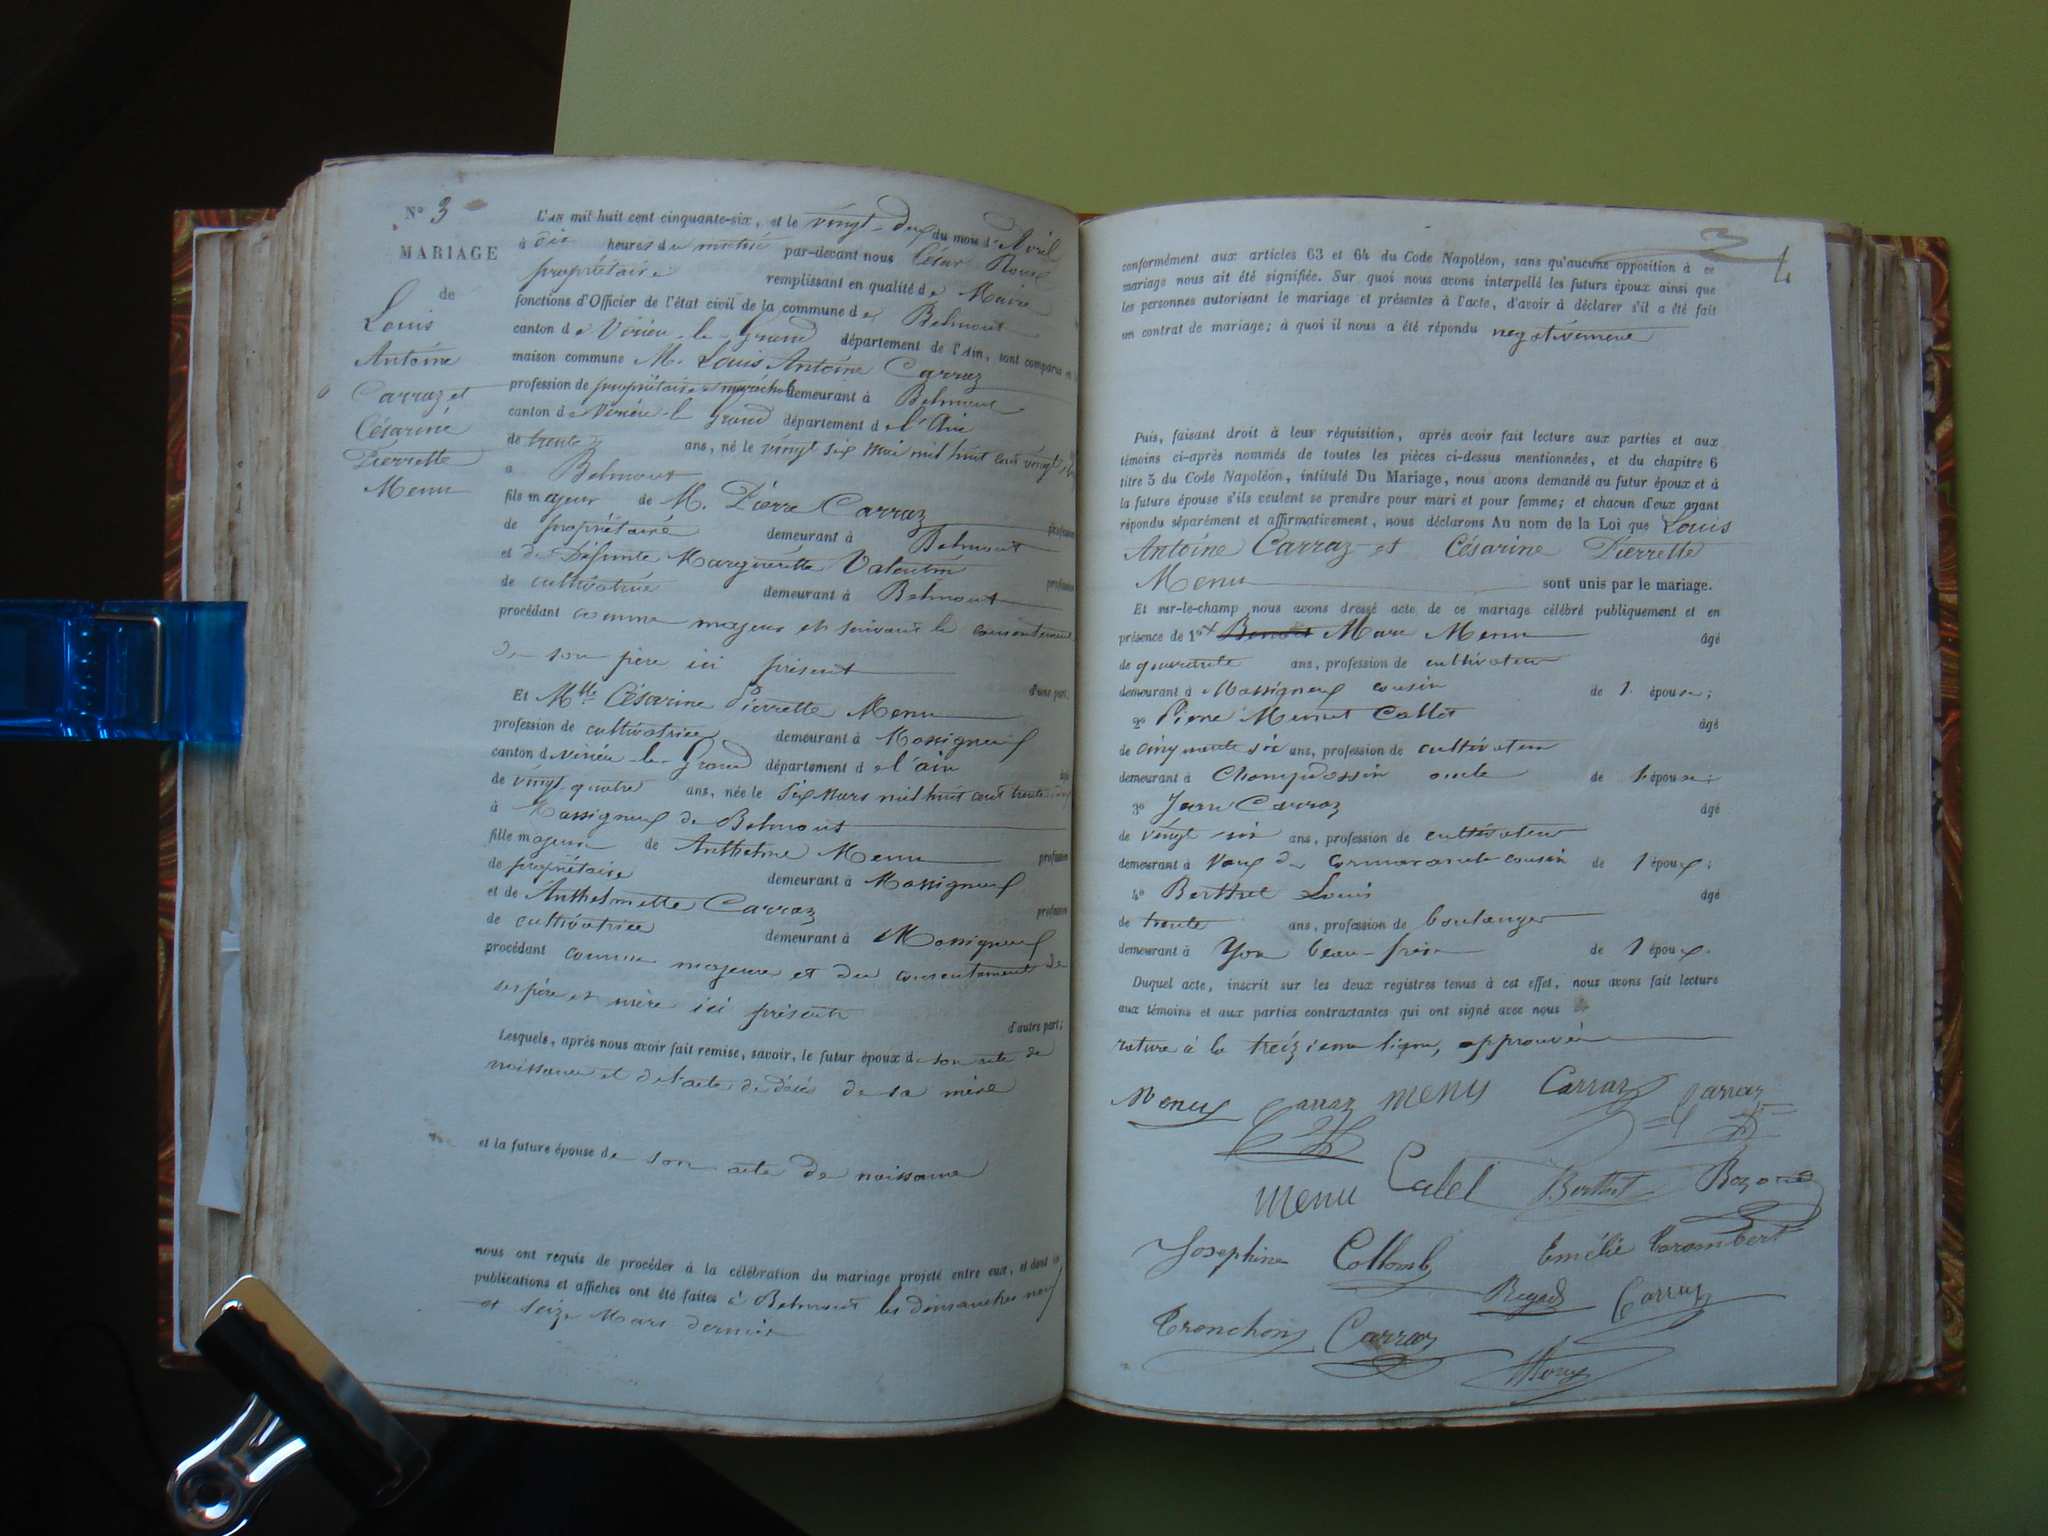 N° 3
MARIAGE
de
Louis
Antoine
Carraz et
Césarine
Pierrette
Menu
L'AN mil huit cent cinquante-six, et le vingt-deux du mois d'Avril
à dix heures du matin par-devant nous César
propriétaire remplissant en qualité de Maire
fonctions d'Officier de l'état civil de la commune de Belmont
canton de Virieu-le-grand département de l'Ain, sont comparus en
maison commune M. Louis Antoine Carraz
profession de propriétaire et maréchal demeurant à Belmont
canton de Virieu-le grand département de l'Ain
de trente ans, né le vingt six mai mil huit cent vingt
à Belmont
fils majeur de M. Pierre Carraz profession
de propriétaire demeurant à Belmont
et de Défunte Marguerite Valentin profession
de cultivatrice demeurant à Belmont
procédant comme majeur et suivant le consentement
de son père ici présent
d'une part,
Et Mlle Césarine Pierrette Menu
profession de cultivatrice demeurant à Massigneux
canton de Virieu-le-Grand département de l'ain
de vingt-quatre ans, née le six mars mil huit cent trente
à Massigneux de Belmont
fille majeure de Anthelme Menu profession
de propriétaire demeurant à Massigneux
et de Anthelmette Carraz profession
de cultivatrice demeurant à Massigneux
procédant comme majeure et du consentement de
ses père et mère ici présents
d'autre part;
Lesquels, après nous avoir fait remise, savoir, le futur époux de son acte de
naissance et de l'acte de décès de sa mère
et la future épouse de son acte de naissance
nous ont requis de procéder à la célébration du mariage projeté entre eux, et dont les
publications et affiches ont été faites à Belmont les dimanches neuf
et seize Mars dernier
3
4
conformément aux articles 63 et 64 du Code Napoléon, sans qu'aucune opposition à ce
mariage nous ait été signifiée. Sur quoi nous avons interpellé les futurs époux ainsi que
les personnes autorisant le mariage et présentes à l'acte, d'avoir à déclarer s'il a été fait
un contrat de mariage; à quoi il nous a été répondu négativement
Puis, faisant droit à leur réquisition, après avoir fait lecture aux parties et aux
témoins ci-après nommés de toutes les pièces ci-dessus mentionnées, et du chapitre 6
titre 5 du Code Napoléon, intitulé Du Mariage, nous avons demandé au futur époux et à
la future épouse s'ils veulent se prendre pour mari et pour femme; et chacun d'eux ayant
répondu séparément et affirmativement, nous déclarons Au nom de la Loi que Louis
Antoine Carraz et Césarine Pierrette
Menu sont unis par le mariage.
Et sur-le-champ nous avons dressé acte de ce mariage célébré publiquement et en
présence de 1° Benoit Marc Menu âgé
de quarante ans, profession de cultivateur
demeurant à Massigneux cousin de l'épouse;
2° Pierre Callet âgé
de cinquante six ans, profession de cultivateur
demeurant à Champdossin oncle de l'épouse;
3° Jean Carraz âgé
de vingt six ans, profession de cultivateur
demeurant à Vaux de cormaranche cousin de l'époux;
4° Berthet Louis âgé
de trente ans, profession de boulanger
demeurant à Yon beau-frère de l'époux.
Duquel acte, inscrit sur les deux registres tenus à cet effet, nous avons fait lecture
aux témoins et aux parties contractantes qui ont signé avec nous
rature à la treizième ligne, approuvée
Menu Carraz menu Carraz Carraz
menu Calet Berthet
Josephine Collomb Emélie Corombert
Carraz
Tronchon Carraz